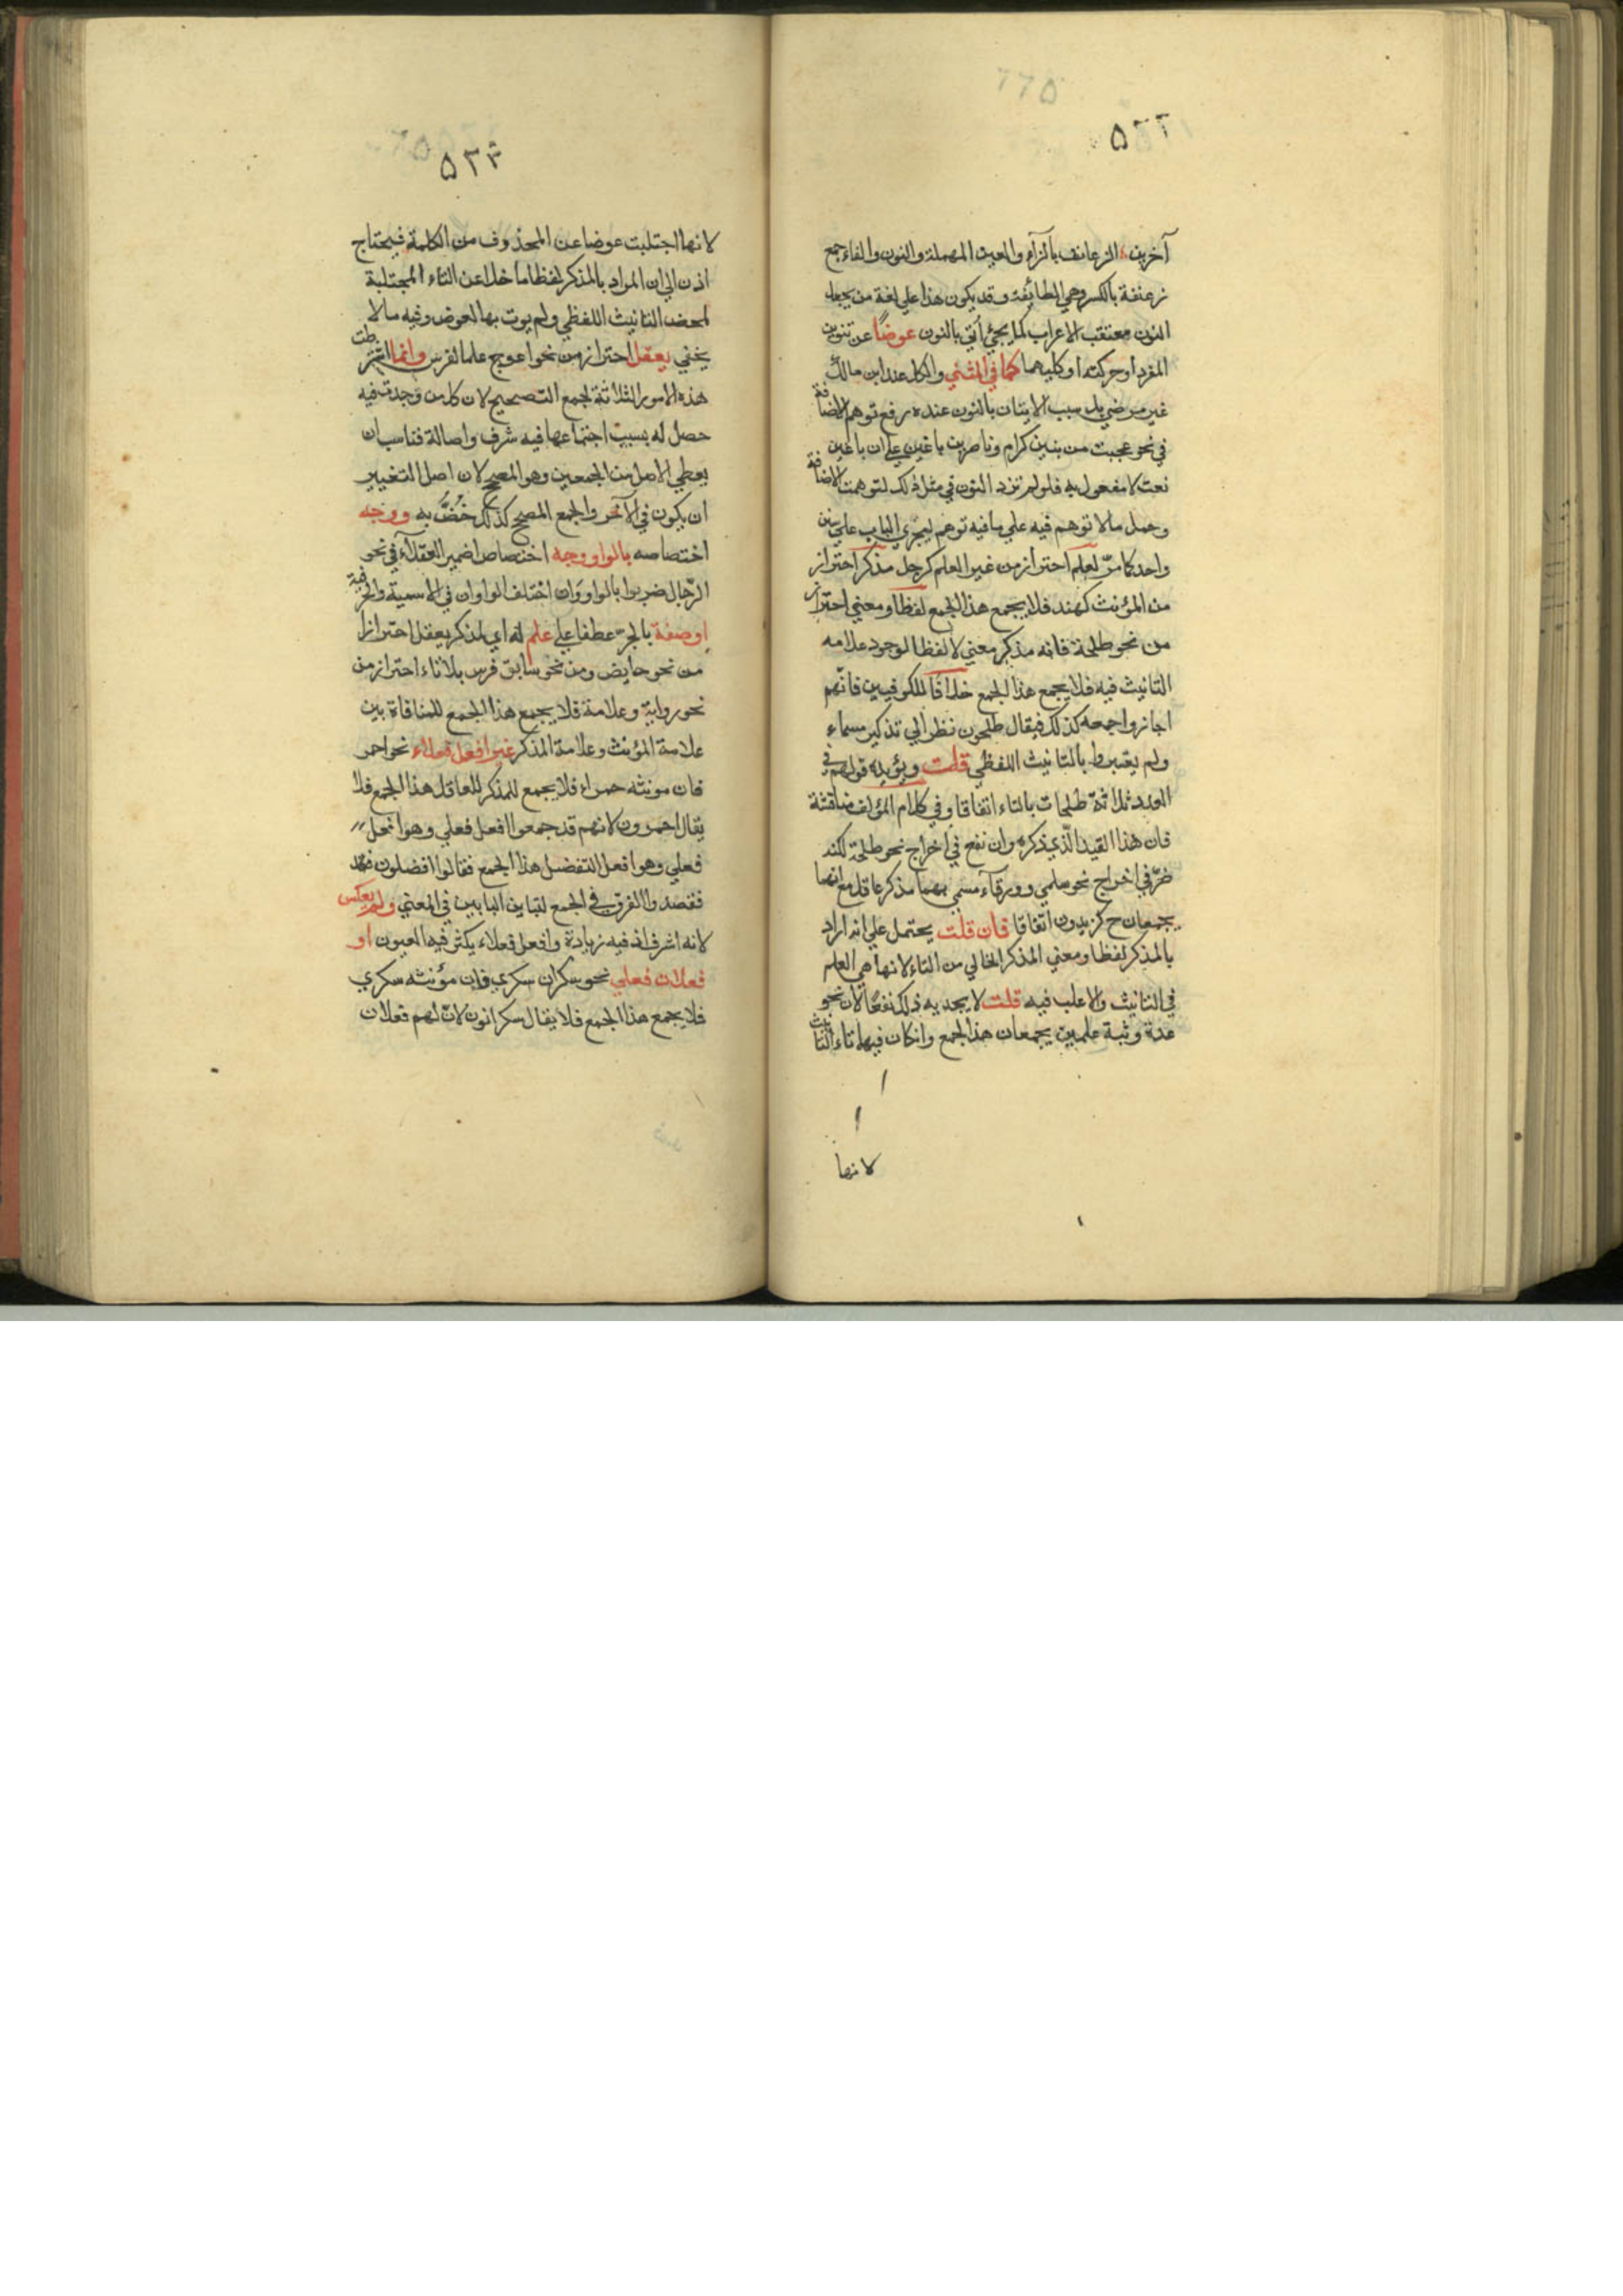 ٥٣٢
آخرين الزعانف بالزآء والعين المهملة والنون والفاء جمع
زعنفة بالكسر وهي الطائفة وقد يكون هذا علي لغة من يجعل
النون معتقب الاعراب كما يجئ أتي بالنون عوضًا عن تنوين
المفرد او حركته او كليهما كما في المثني والكل عند ابن مالك
غير مرضي بل سبب الاتيان بالنون عنده رفع توهم الاضافة
في نحو عجبت من بنين كرام وناصرين باغين علي ان باغين
نعت لا مفعول به فلو لم تزد النون في مثل ذلك لتوهمت الاضافة
وحمل ما لا توهم فيه علي ما فيه توهم ليجري الباب علي سنن
واحد كما مرّ لعلم احتراز من غير العلم كرجل مذكر احتراز
من المؤنث كهند فلا يجمع هذا الجمع لفظا ومعني احتراز
من نحو طلحة فانه مذكر معني لا لفظا لوجود علامه
التانيث فيه فلا يجمع هذا الجمع خلافًا للكوفيين فانّهم
اجازوا جمعه كذلك فيقال طلحون نظرا لي تذكير مسماء
ولم يعتبروا بالتانيث اللفظي قلت ويؤيده قولهم في
العدد ثلاثة طلحات بالتاء اتفاقا وفي كلام المؤلف مناقشة
فان هذا القيد الّذي ذكره وان نفع في اخراج نحو طلحة لكنه
ضرّ في اخراج نحو سلمي وورقآء مسمي بهما مذكر عاقل مع انهما
يجمعان ح كزيدون اتفاقا فان قلت يحتمل علي انه اراد
بالمذكر لفظا ومعني المذكر الخالي من التاء لانها هي العلم
في التانيث والاغلب فيه قلت لا يجديه ذلك نفعًا لان نحو
عدة وثبة علمين يجمعان هذا الجمع وانكان فيهما تاء التانيث
لانها
٥٣٣
لانها اجتلبت عوضا عن المحذوف من الكلمة فيحتاج
اذن الي ان المراد بالمذكر لفظا ما خلا عن التاء المجتلبة
لمحض التانيث اللفظي ولم يوت بها لعوض وفيه ما لا
يخفي يعقل احتراز من نحو اعوج علما لفرس وانما اشترطت
هذه الامور الثلاثة لجمع التصحيح لان كل من وجدت فيه
حصل له بسبب اجتماعها فيه شرف واصالة فناسب ان
يعطي الاصل من الجمعين وهو المصحح لان اصل التغيير
ان يكون في الآخر والجمع المصحح كذلك خُصَّ به ووجه
اختصاصه بالواو ووجه اختصاص ضمير العقلآء في نحو
الرّجال ضربوا بالواو وَان اختلف الواوان في الاسمية والحرفية
اوصفة بالجرّ عطفا علي علم له اي لمذكر يعقل احترازا
من نحو حايض ومن نحو سابق فرس بلا تاء احتراز من
نحو رواية وعلامة فلا يجمع هذا الجمع للمنافاة بين
علامة المؤنث وعلامة المذكر غير افعل فعلآء نحو احمر
فان مونثه حمراء فلا يجمع للمذكر للعاقل هذا الجمع فلا
يقال احمرون لانهم قد جمعوا افعل فعلي وهو افعل
فعلي وهو افعل التفضل هذا الجمع فقالوا افضلون
فقصدوا الفرق في الجمع لتباين البابين في المعني ولم يعكس
لانه اشرف اذ فيه زيادة وافعل فعلاء يكثر فيه العيون او
فعلان فعلي نحو سكران سكري فان مؤنثه سكري
فلا يجمع هذا الجمع فلا يقال سكرانون لانّ لهم فعلان